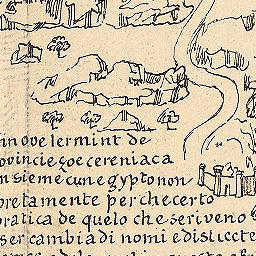 in ove lermint de
ovincie çoe cereniaca
nsieme cun egypto non
pretamente per che certo
pratica de quelo che scriveno
ser cambia di nomi e dislicete